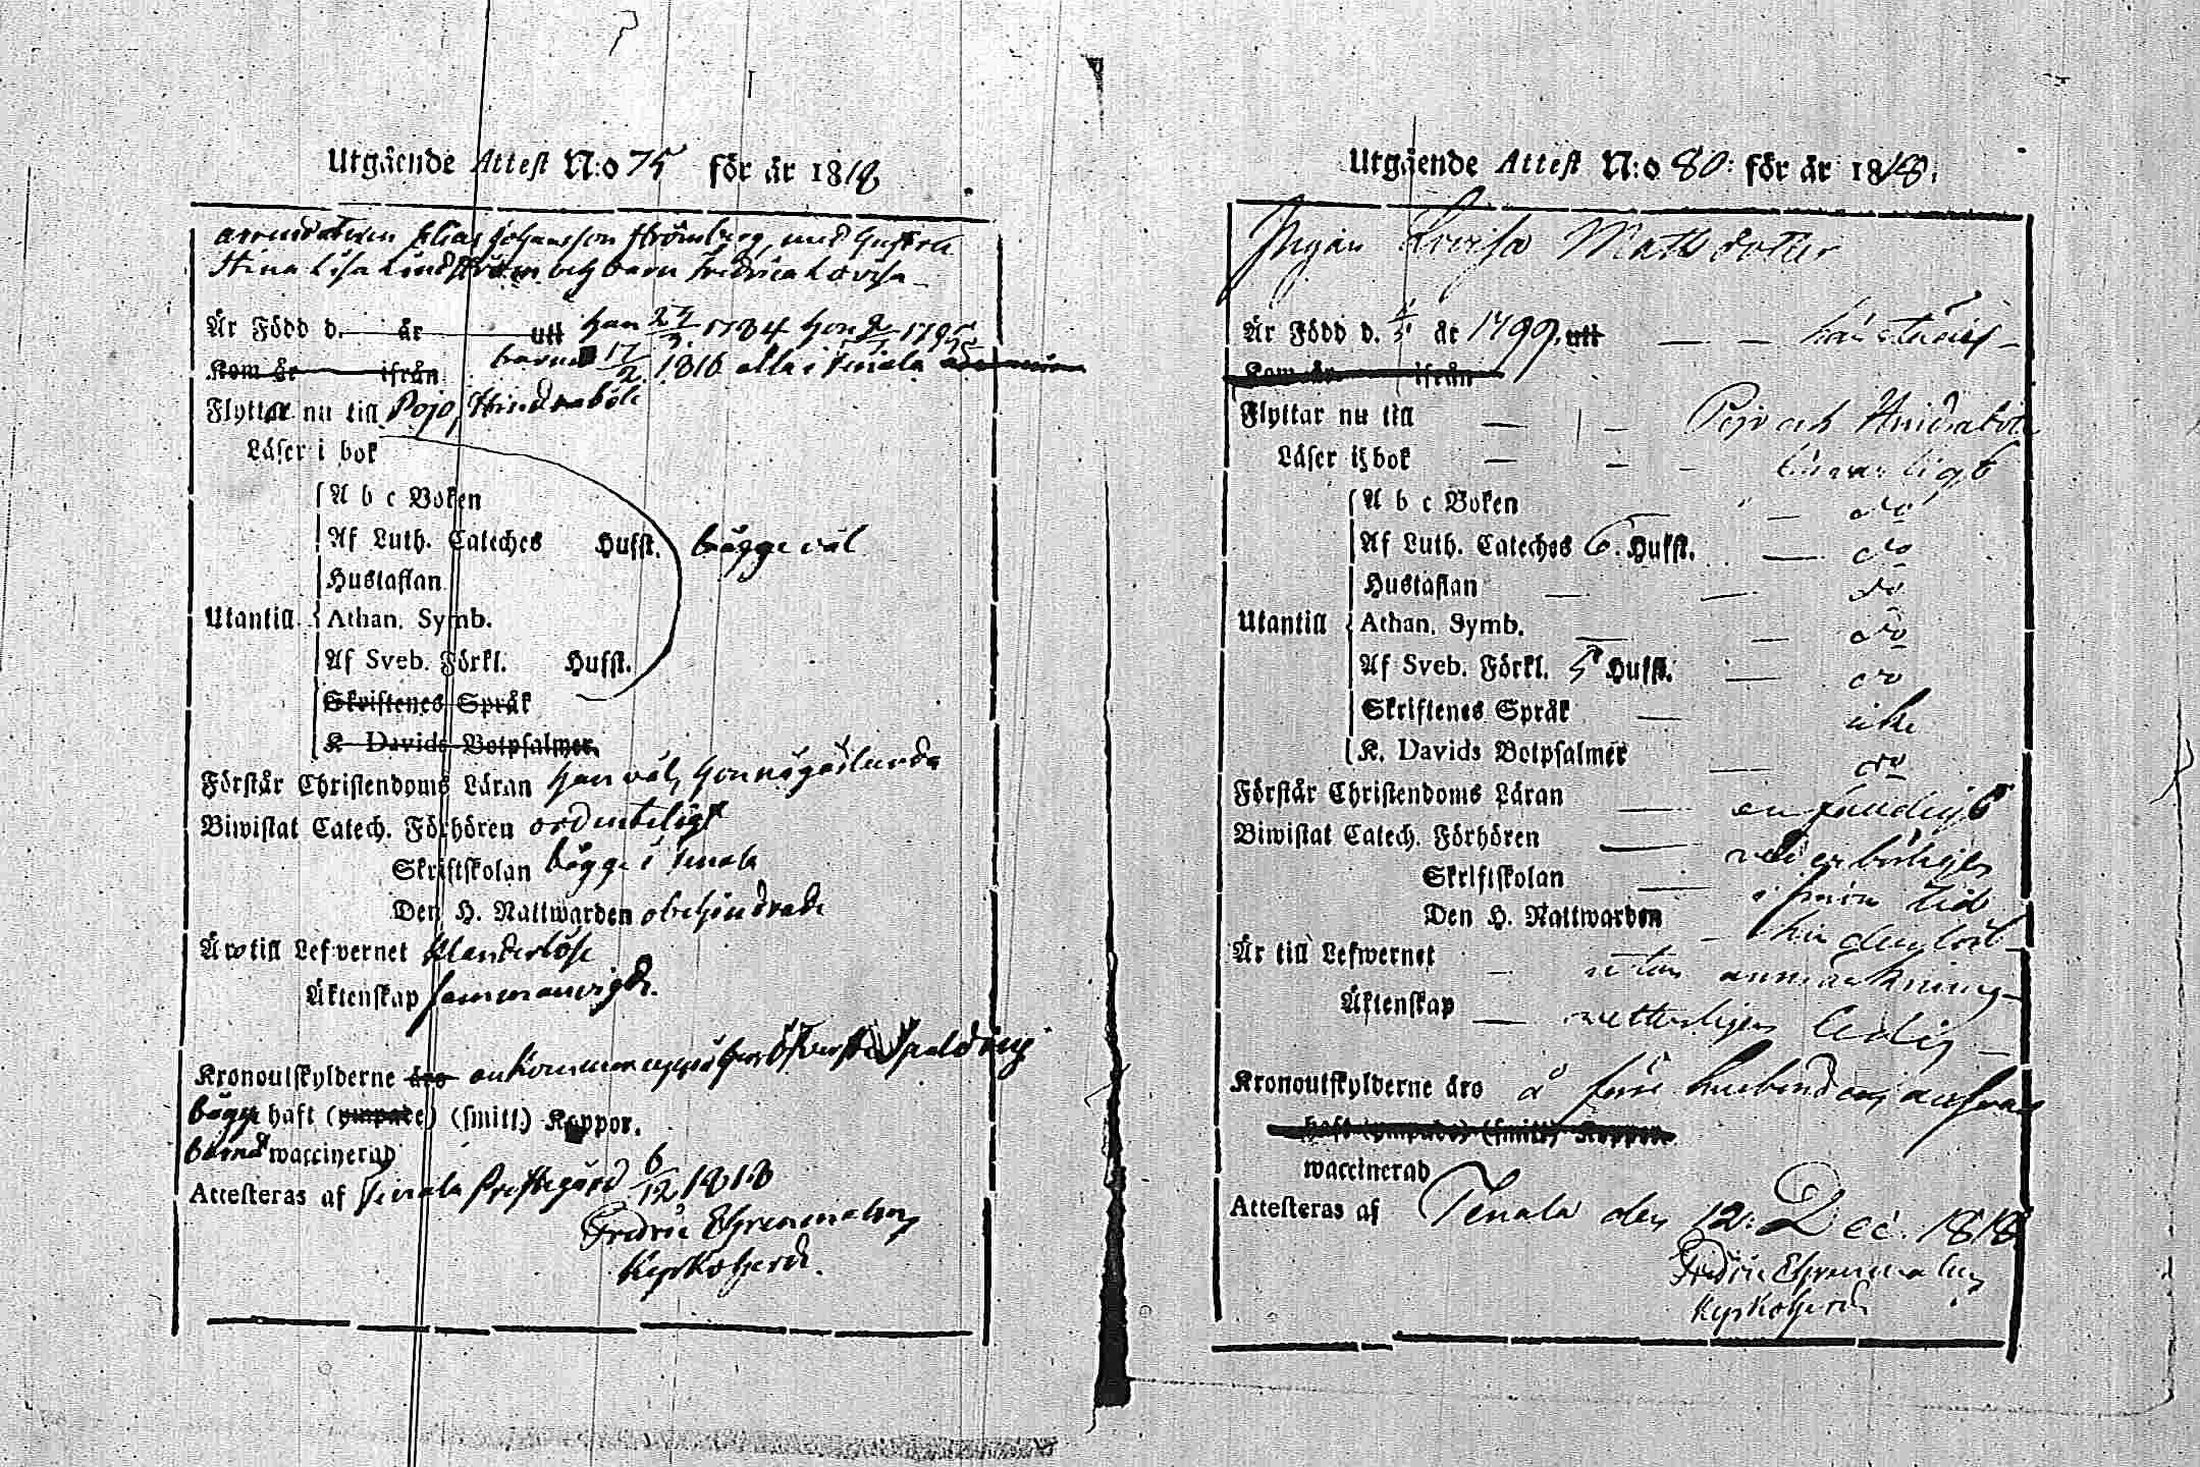 Utgående Attest N:o 75 för år 1818
arrendatoren Elias Johansson Strömberg, med hustru
Stina Lisa Lindström och barn Fredrica Lovisa
Är Född d. år utt han 1784 hon 1795
Kom år ifrån barnet 17/2 1816 alla i Tenala
Flytta nu till Pojo, Hindrabole
Läser i bok
A b c Boken
Af Luth. Cateches Hufst. bägge väl
Hustaflan
Utantill Athan. Symb.
Af Sveb. Förkl. Hufst.
Skriftenes Språk
K. Davids Botpsalmer.
Förstår Christendoms Läran han väl, hon någorlunda
Biwistat Catech. Förhören ordenteligt
Skriftskolan bägge i Tenala
Den H. Nattwarden obehindrade
Äro till Lefvernet klanderlöse
Äktenskap sammanvigde.
Kronoutskylderne äro ankommer uppå herr Öfverste Spalding
bägge haft (ympade) (smitt.) Koppor.
barnet waccinerad
Attesteras af Tenala Prästegård 6/12 1818
Fredric Ehrenmalm
Kyrkoherde.
Utgående Attest N:o 80: för år 1818.
Pigan Lovisa Mathsdotter
Är Född d. år 1799. utt härstädes
Kom år ifrån
Flyttar nu till Pojo och Hindrabole
Läser i bok
A b c Boken do
Af Luth. Cateches 6. Hufst. do
Hustaflan do
Utantill Athan. Symb. do
Af Sveb. Förkl. 5 Hufst. do
Skriftenes Språk icke
K. Davids Botpsalmer do
Förstår Christendoms Läran enfaldigt
Biwistat Catech. Förhören vederbörligen
Skriftskolan i sinom tid
Den H. Nattwarden
Är till Lefwernet utan anmärkning
Äktenskap vetterligen ledig
Kronoutskylderne äro å förre husbond
haft (ympade) (smitt) Koppor
waccinerad
Attesteras af Tenala den 12: Dec. 1818
Fredric Ehrenmalm
Kyrkoherde